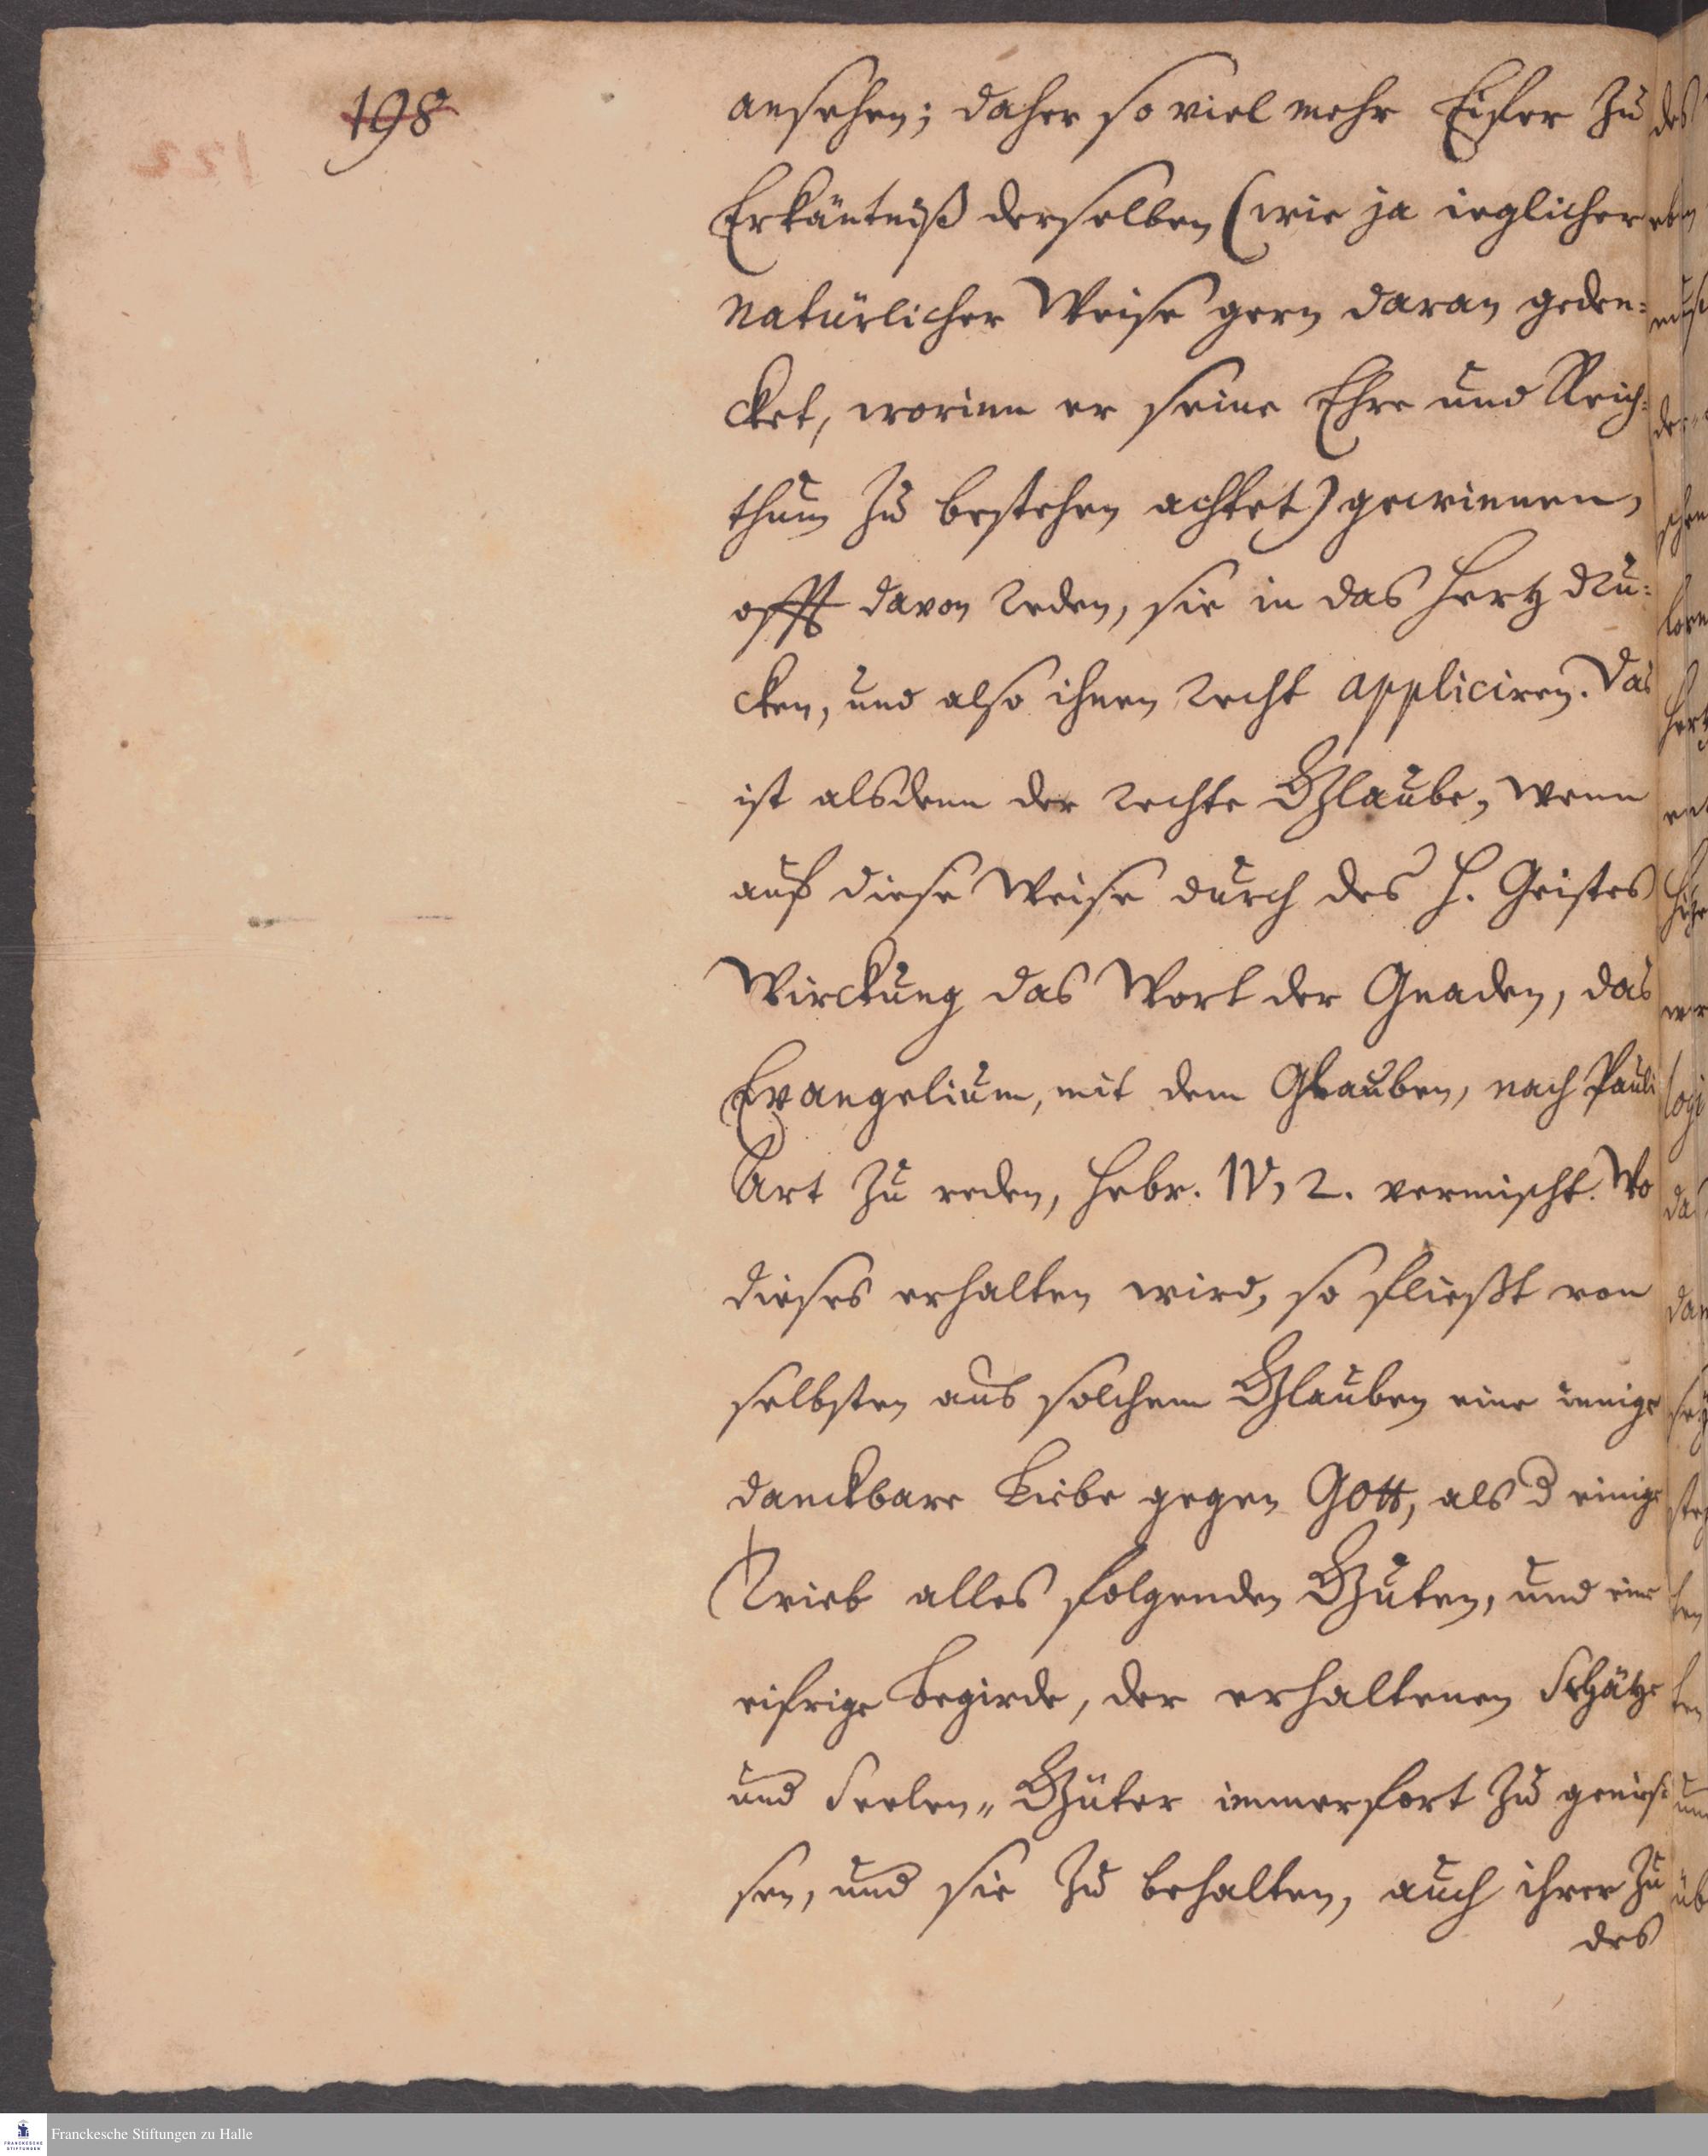 198
ansehen; daher so viel mehr Eifer zu
Erkäntniß derselben (wie ja ieglicher
natürlicher Weise gern daran geden=
cket, worinn er seine Ehre und Reich=
thum zu bestehen achtet) gewinnen,
offt davon reden, sie in das Hertz dru=
cken, und also ihnen recht appliciren. Das
ist alsdenn der rechte Glaube, wenn
auf diese Weise durch des H. Geistes
Wirckung das Wort der Gnaden, das
Evangelium, mit dem Glauben, nach Pauli
Art zu reden, Hebr. IV, 2. vermischt. Wo
dieses erhalten wird, so fließt von
selbsten aus solchem Glauben eine innige
danckbare Liebe gegen Gott, als d einige
Trieb alles folgenden Guten, und eine
eifrige Begirde, der erhaltenen Schätze
und Seelen= Güter immerfort zu genies=
sen, und sie zu behalten, auch ihrer zu
des
Franckesche Stiftungen zu Halle